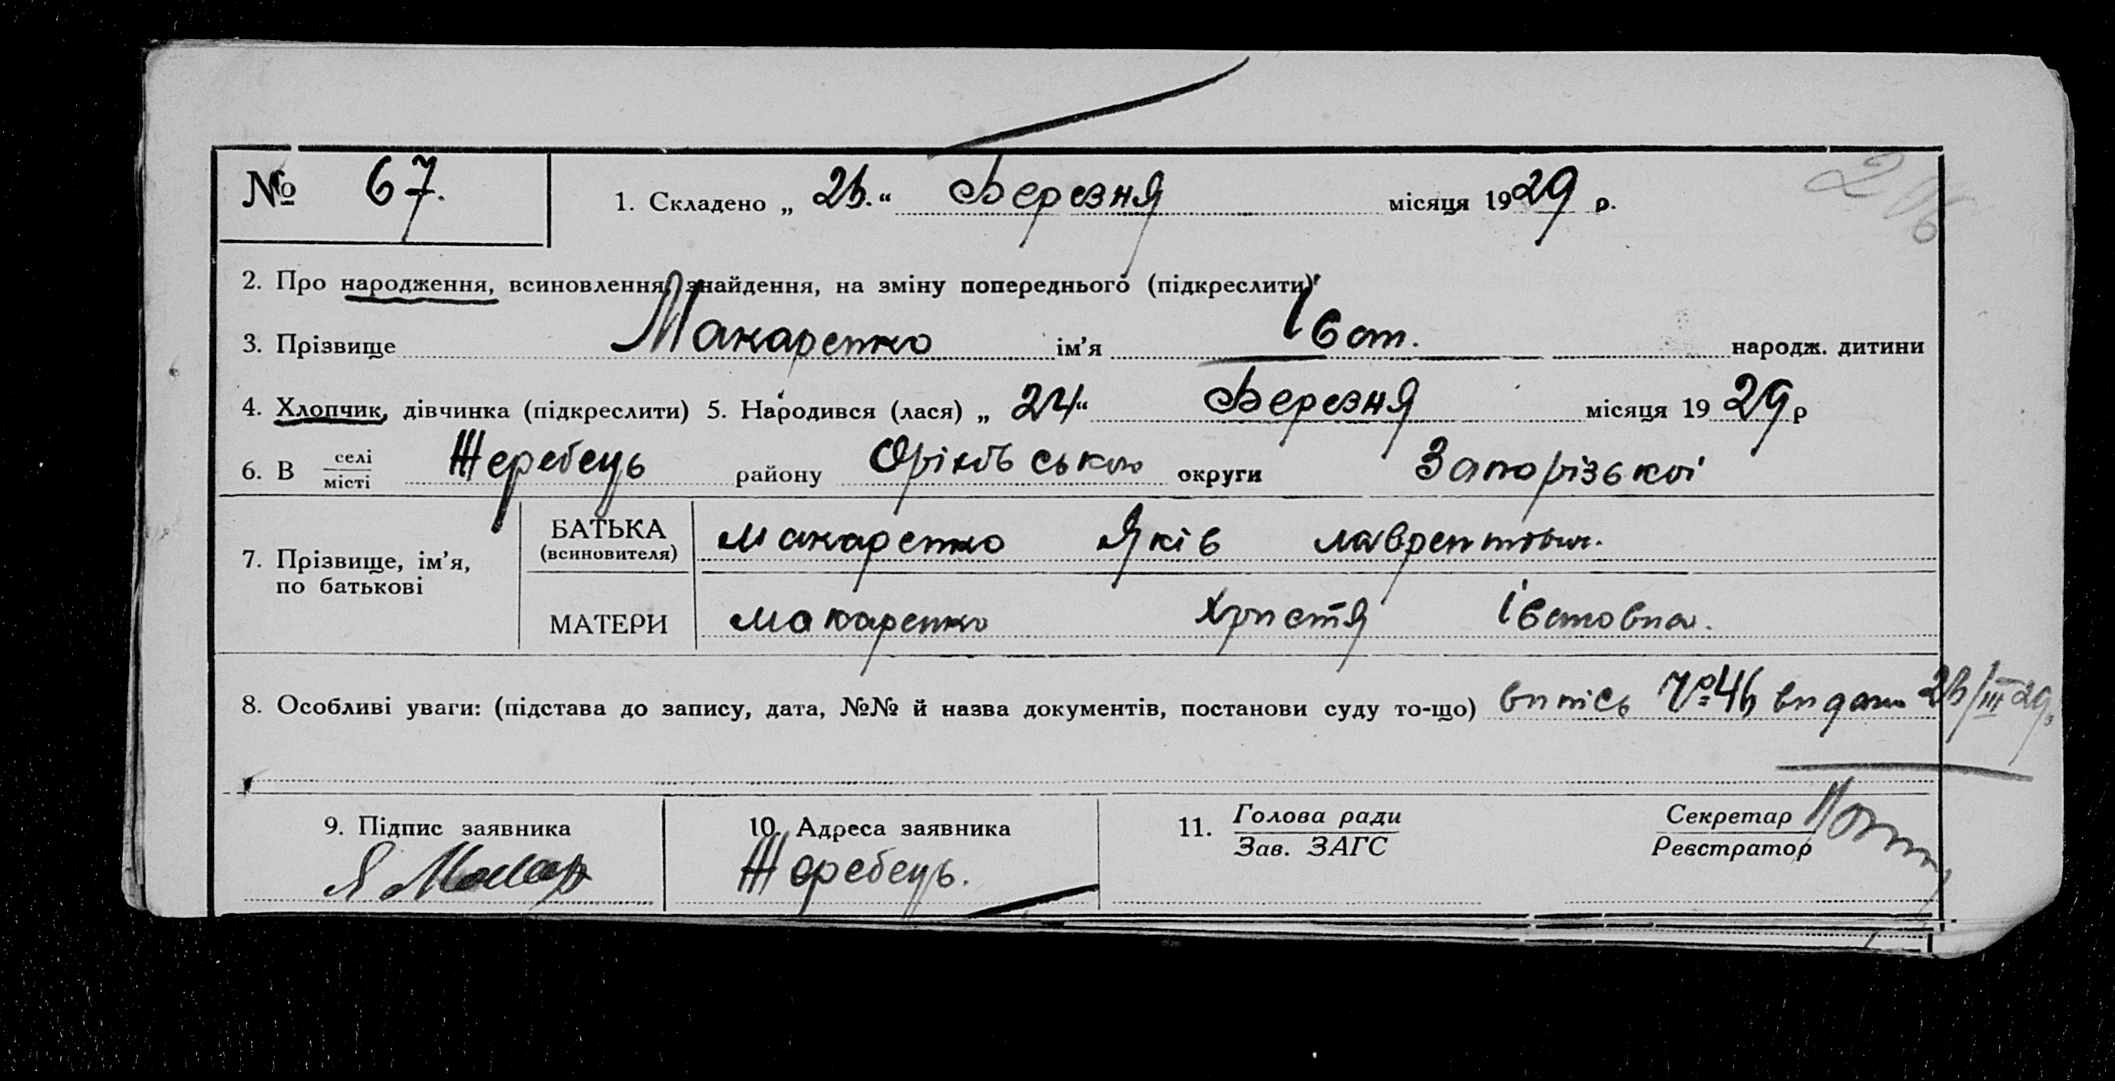 № 67. 1. Складено „ 25.“ Березня місяця 1929 р.
206
2. Про народження, всиновлення, знайдення, на зміну попереднього (підкреслити)
3. Прізвище Макаренко ім'я Іван. народж. дитини
4. Хлопчик, дівчинка (підкреслити) 5. Народився (лася) „ 24“ Березня місяця 1929 р
6. В селі місті Жеребець району Оріхівського округи Запорізької
7. Прізвище, ім'я, по батькові
БАТЬКА (всиновителя) Макаренко Яків Лаврентович.
МАТЕРИ Макаренко Христя Івановна.
8. Особливі уваги: (підстава до запису, дата, №№ й назва документів, постанови суду то-що) випись №46 видана 25/III 29.
9. Підпис заявника 10. Адреса заявника 11. Голова ради Зав. ЗАГС Секретар Реєстратор
Я Макар Жеребець.